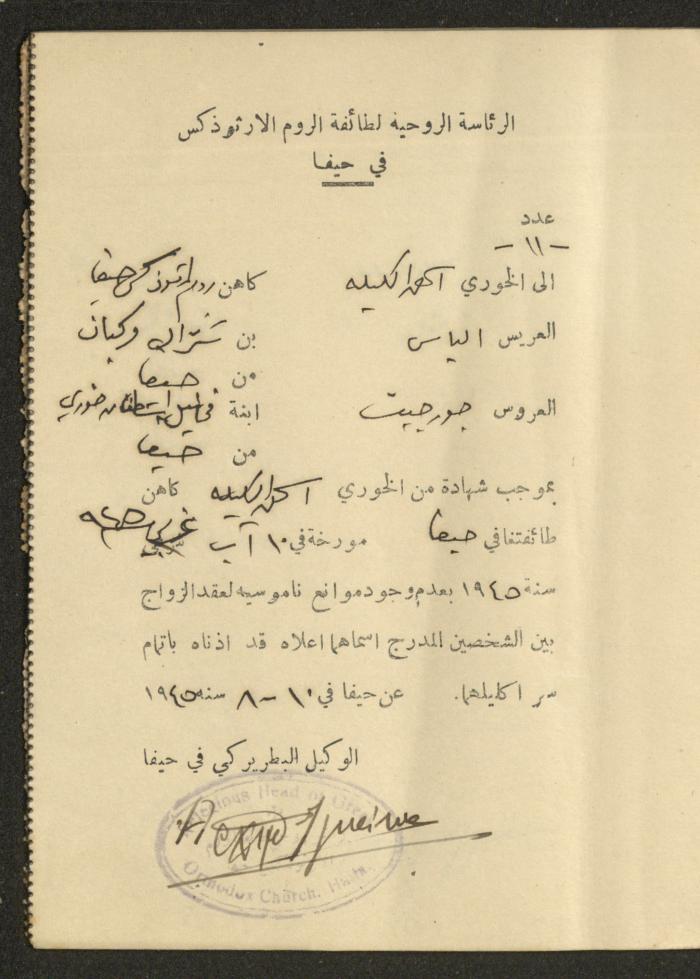 الرئاسة الروحية لطائفة الروم الارثوذكس
في حيفا
عدد
- ١١ -
الى الخوري كاهن حيفا
العريس الياس بن
من حيفا
العروس جورجيت ابنة خوري
من حيفا
بموجب شهادة من الخوري كاهن
طائفتنا في حيفا مورخة في ١٠ آب غربي
سنة ١٩٤٥ بعدم وجود موانع ناموسيه لعقد الزواج
بين الشخصين المدرج اسماهما اعلاه قد اذناه باتمام
سر اكليلهما. عن حيفا في ١٠-٨ سنه ١٩٤٥
الوكيل البطريركي في حيفا
Religious Head of Greek
Orthodox Church, Haifa.